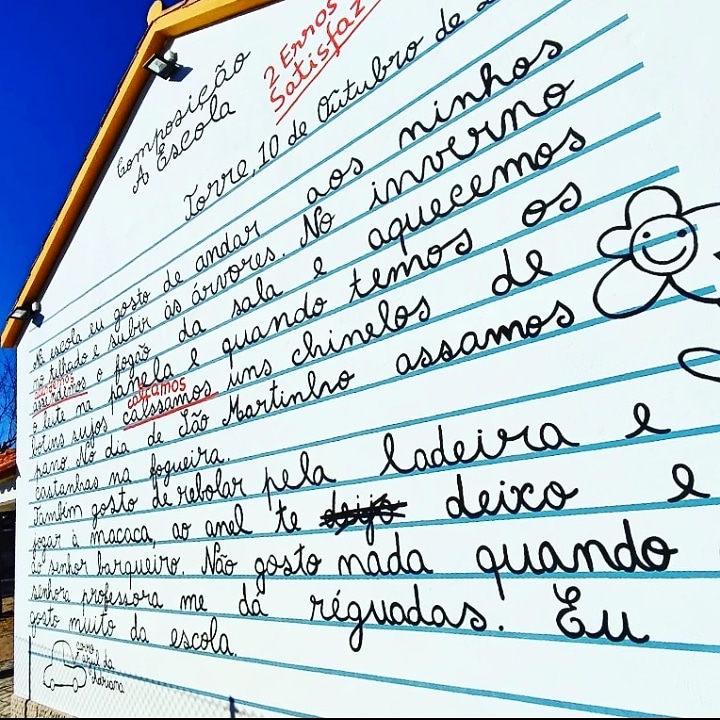 Composição
A Escola
2 Erros
Satisfaz
Torre, 10 de Outubro de
Na escola eu gosto de andar aos ninhos
no telhado e subir às árvores. No inverno
acendemos
assendimos o fogão da sala e aquecemos
o leite na panela e quando temos os
calçamos
botins sujos calssamos uns chinelos de
pano No dia de São Martinho assamos
castanhas na fogueira.
Também gosto de rebolar pela ladeira e
jogar à macaca, ao anel te deijo deixo e
ao senhor barqueiro. Não gosto nada quando
senhora professora me dá réguadas. Eu
gosto muito da escola.
carro
azul da
Adriana